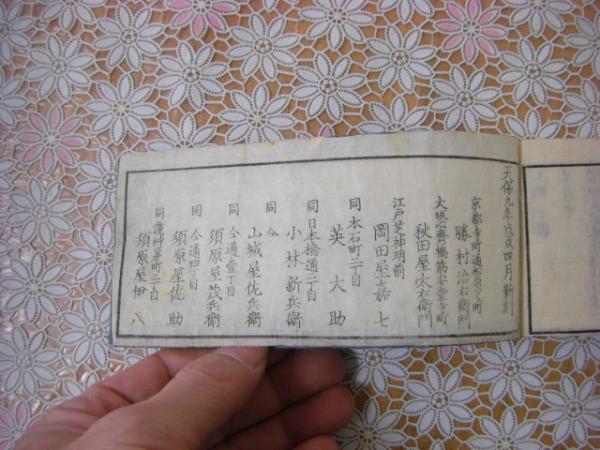 天保九年戊戌四月新刻
京都寺町通松原下町
勝村治右衛門
大坂心斎橋筋安堂寺町
秋田屋太右衛門
江戸芝神明前
岡田屋嘉七
同本石町二丁目
英大助
同日本橋通二丁目
小林新兵衛
同仝
山城屋佐兵衛
同仝通壹丁目
須原屋茂兵衛
同仝通四丁目
須原屋佐助
同浅草茅町二丁目
須原屋伊八